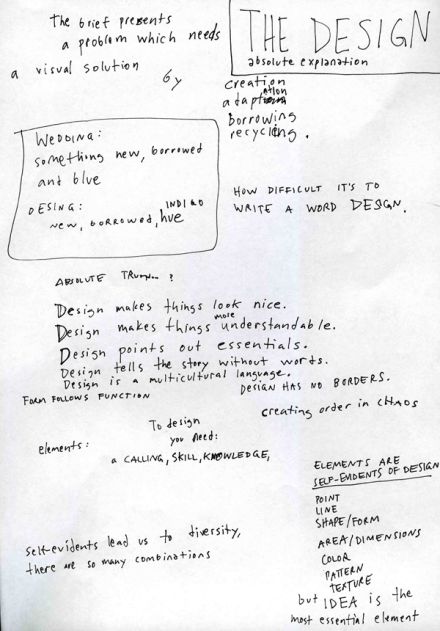 the brief presents
a problem which needs
a visual solution
by
THE DESIGN
absolute explanation
creation
adaptation
borrowing
recycling.
WEDDING:
something new, borrowed
and blue
DESING:
INDIGO
new, borrowed, hue
HOW DIFFICULT IT'S TO
WRITE A WORD DESIGN.
ABSOLUTE ?
Design makes things look nice.
more
Design makes things understandable.
Design points out essentials.
Design tells the story without words.
Design is a multicultural language.
DESIGN HAS NO BORDERS.
FORM FOLLOWS FUNCTION
creating order in CHAOS
To design
you need:
elements:
a CALLING, SKILL, KNOWLEDGE,
ELEMENTS ARE
SELF-EVIDENTS OF DESIGN
POINT
LINE
SHAPE/FORM
AREA/DIMENSIONS
COLOR
PATTERN
TEXTURE
but IDEA is the
most essential element
self-evidents lead us to diversity,
there are so many combinations